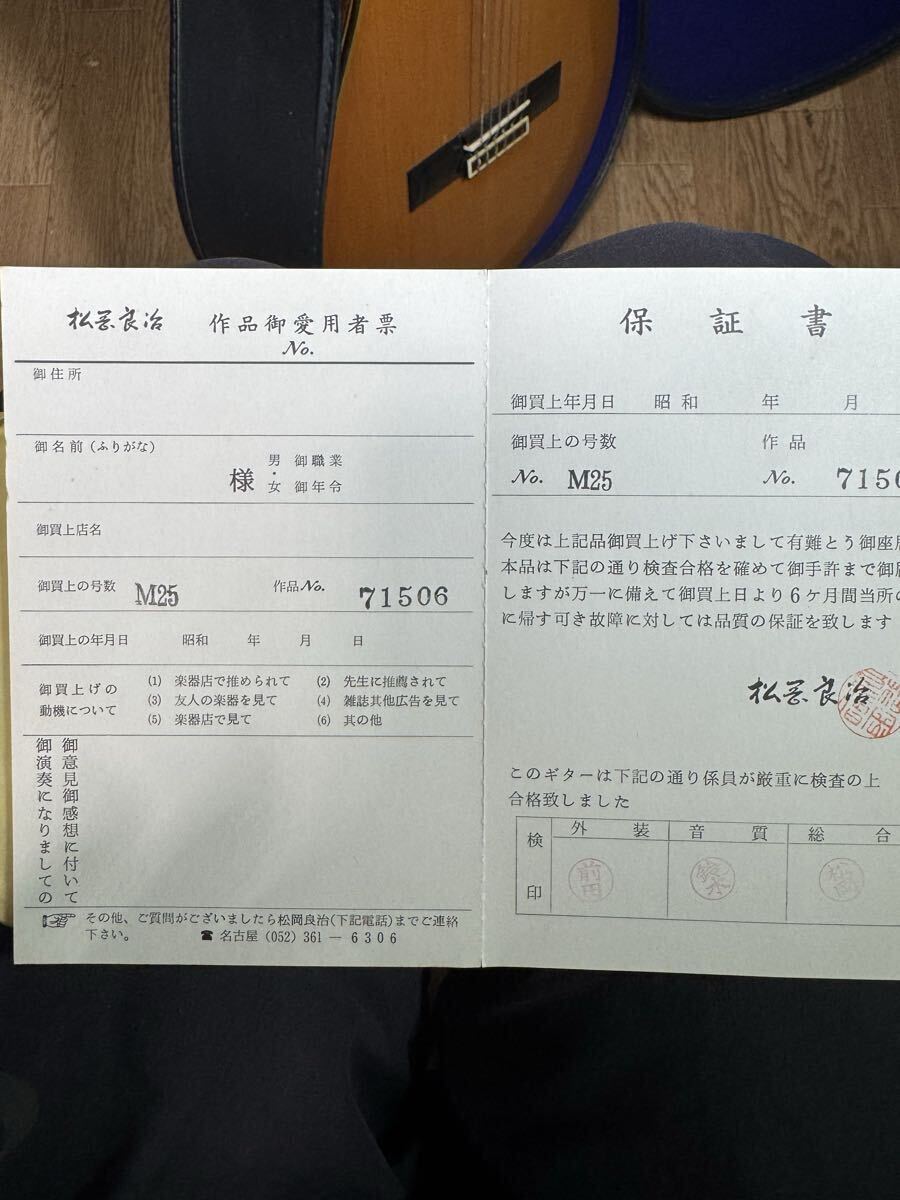 松岡良治 作品御愛用者票
No.
御住所
御名前(ふりがな)
様 男・女 御職業 御年令
御買上店名
御買上の号数 M25 作品No. 71506
御買上の年月日 昭和 年 月 日
御買上げの動機について
(1) 楽器店で推められて (2) 先生に推薦されて
(3) 友人の楽器を見て (4) 雑誌其他広告を見て
(5) 楽器店で見て (6) 其の他
御意見御感想に付いて
御演奏になりましての
☞ その他、ご質問がございましたら松岡良治(下記電話)までご連絡
下さい。 ☎ 名古屋 (052) 361 ― 6306
保証書
御買上年月日 昭和 年 月
御買上の号数 作品
No. M25 No. 7150
今度は上記品御買上げ下さいまして有難とう御座
本品は下記の通り検査合格を確めて御手許まで御
しますが万一に備えて御買上日より6ケ月間当所
に帰す可き故障に対しては品質の保証を致します
松岡良治
このギターは下記の通り係員が厳重に検査の上
合格致しました
検印 外装 音質 総合
前田 松岡